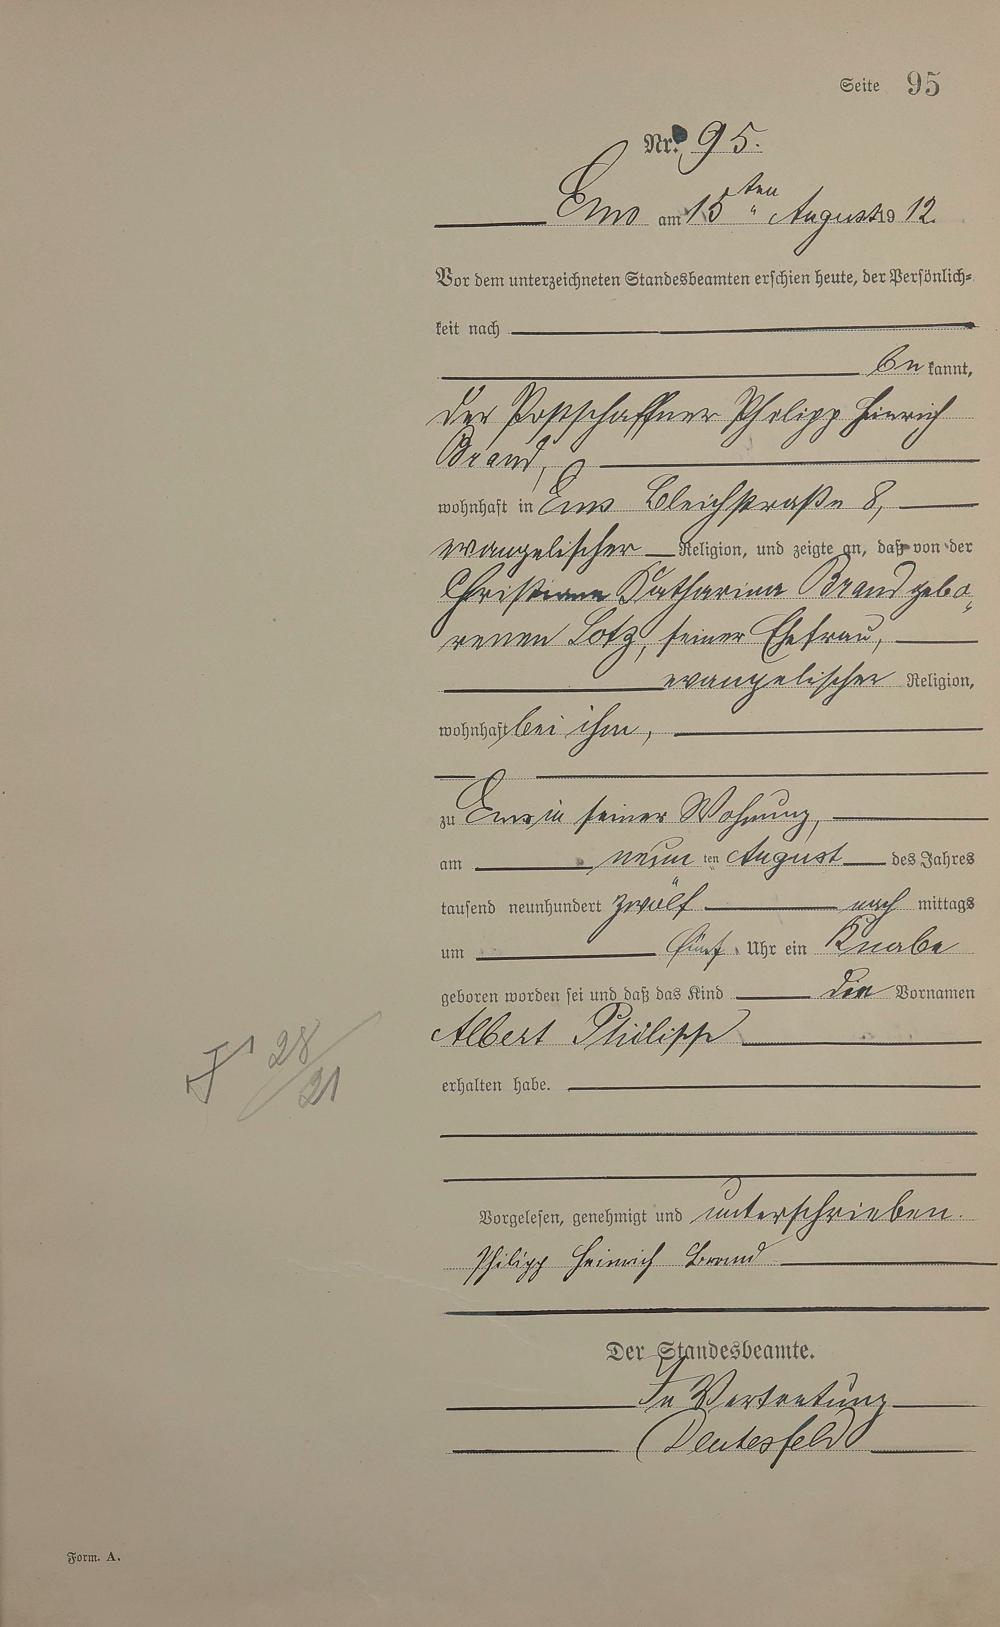 Seite 95
Nr. 95.
Ems am 15ten August 1912.
Vor dem unterzeichneten Standesbeamten erschien heute, der Persönlich-
keit nach
bekannt,
der Postschaffner Philipp Heinrich
Brand,
wohnhaft in Ems Bleichstraße 8,
evangelischer Religion, und zeigte an, daß von der
Katharina Brand gebo-
renen Lotz, seiner Ehefrau,
evangelischer Religion,
wohnhaft bei ihm,
zu Ems in seiner Wohnung,
am neunten August des Jahres
tausend neunhundert zwölf nachmittags
um fünf Uhr ein Knabe
geboren worden sei und daß das Kind die Vornamen
Albert Philipp
erhalten habe.
28/21
Vorgelesen, genehmigt und unterschrieben.
Philipp Heinrich Brand
Der Standesbeamte.
In Vertretung
Form. A.